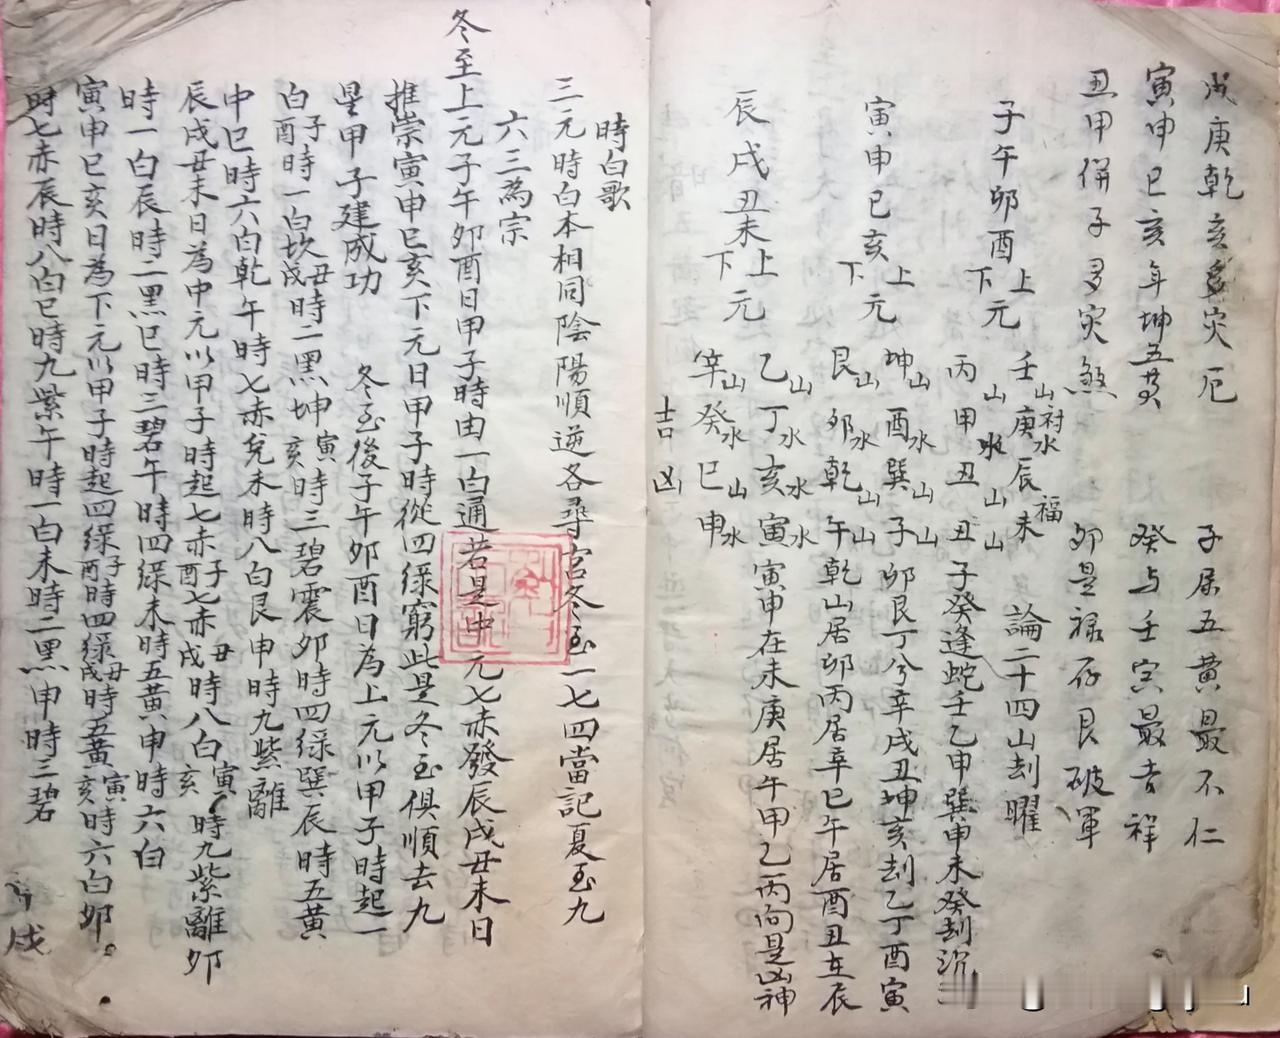 戊庚乾亥多災厄 子居五黄最不仁
寅申巳亥年坤五黄 癸与壬宮最吉祥
丑甲併子多災煞 卯是禄存艮破軍
子午卯酉上下元 壬山庚山辰未 附水福 論二十四山刦曜
丙山甲水丑山丑山 子癸逢蛇壬乙申巽申未癸刦沉
寅申巳亥上下元 坤山酉水巽山子山 卯艮丁兮辛戌丑坤亥刦乙丁酉寅
艮山卯水乾山午山 乾山居卯丙居辛巳午居酉丑在辰
辰戌丑未上下元 乙山丁水亥水寅水 寅申在未庚居午甲乙丙向是凶神
辛山癸水巳山申水
吉凶
時白歌
三元時白本相同陰陽順逆各尋宮冬至一七四當記夏至九
六三為宗
冬至上元子午卯酉日甲子時由一白通若是中元七赤發辰戌丑未日
推崇寅申巳亥下元日甲子時從四緑窮此是冬至俱順去九
星甲子建成功 冬至後子午卯酉日為上元以甲子時起一
白子酉時一白坎丑戌時二黑坤寅亥時三碧震卯時四緑巽辰時五黄
中巳時六白乾午時七赤兌未時八白艮申時九紫離
辰戌丑未日為中元以甲子時起七赤子酉七赤丑戌時八白寅亥時九紫離卯
時一白辰時二黑巳時三碧午時四緑未時五黄申時六白
寅申巳亥日為下元以甲子時起四緑子酉時四緑丑戌時五黄寅亥時六白卯
時七赤辰時八白巳時九紫午時一白未時二黑申時三碧
戌